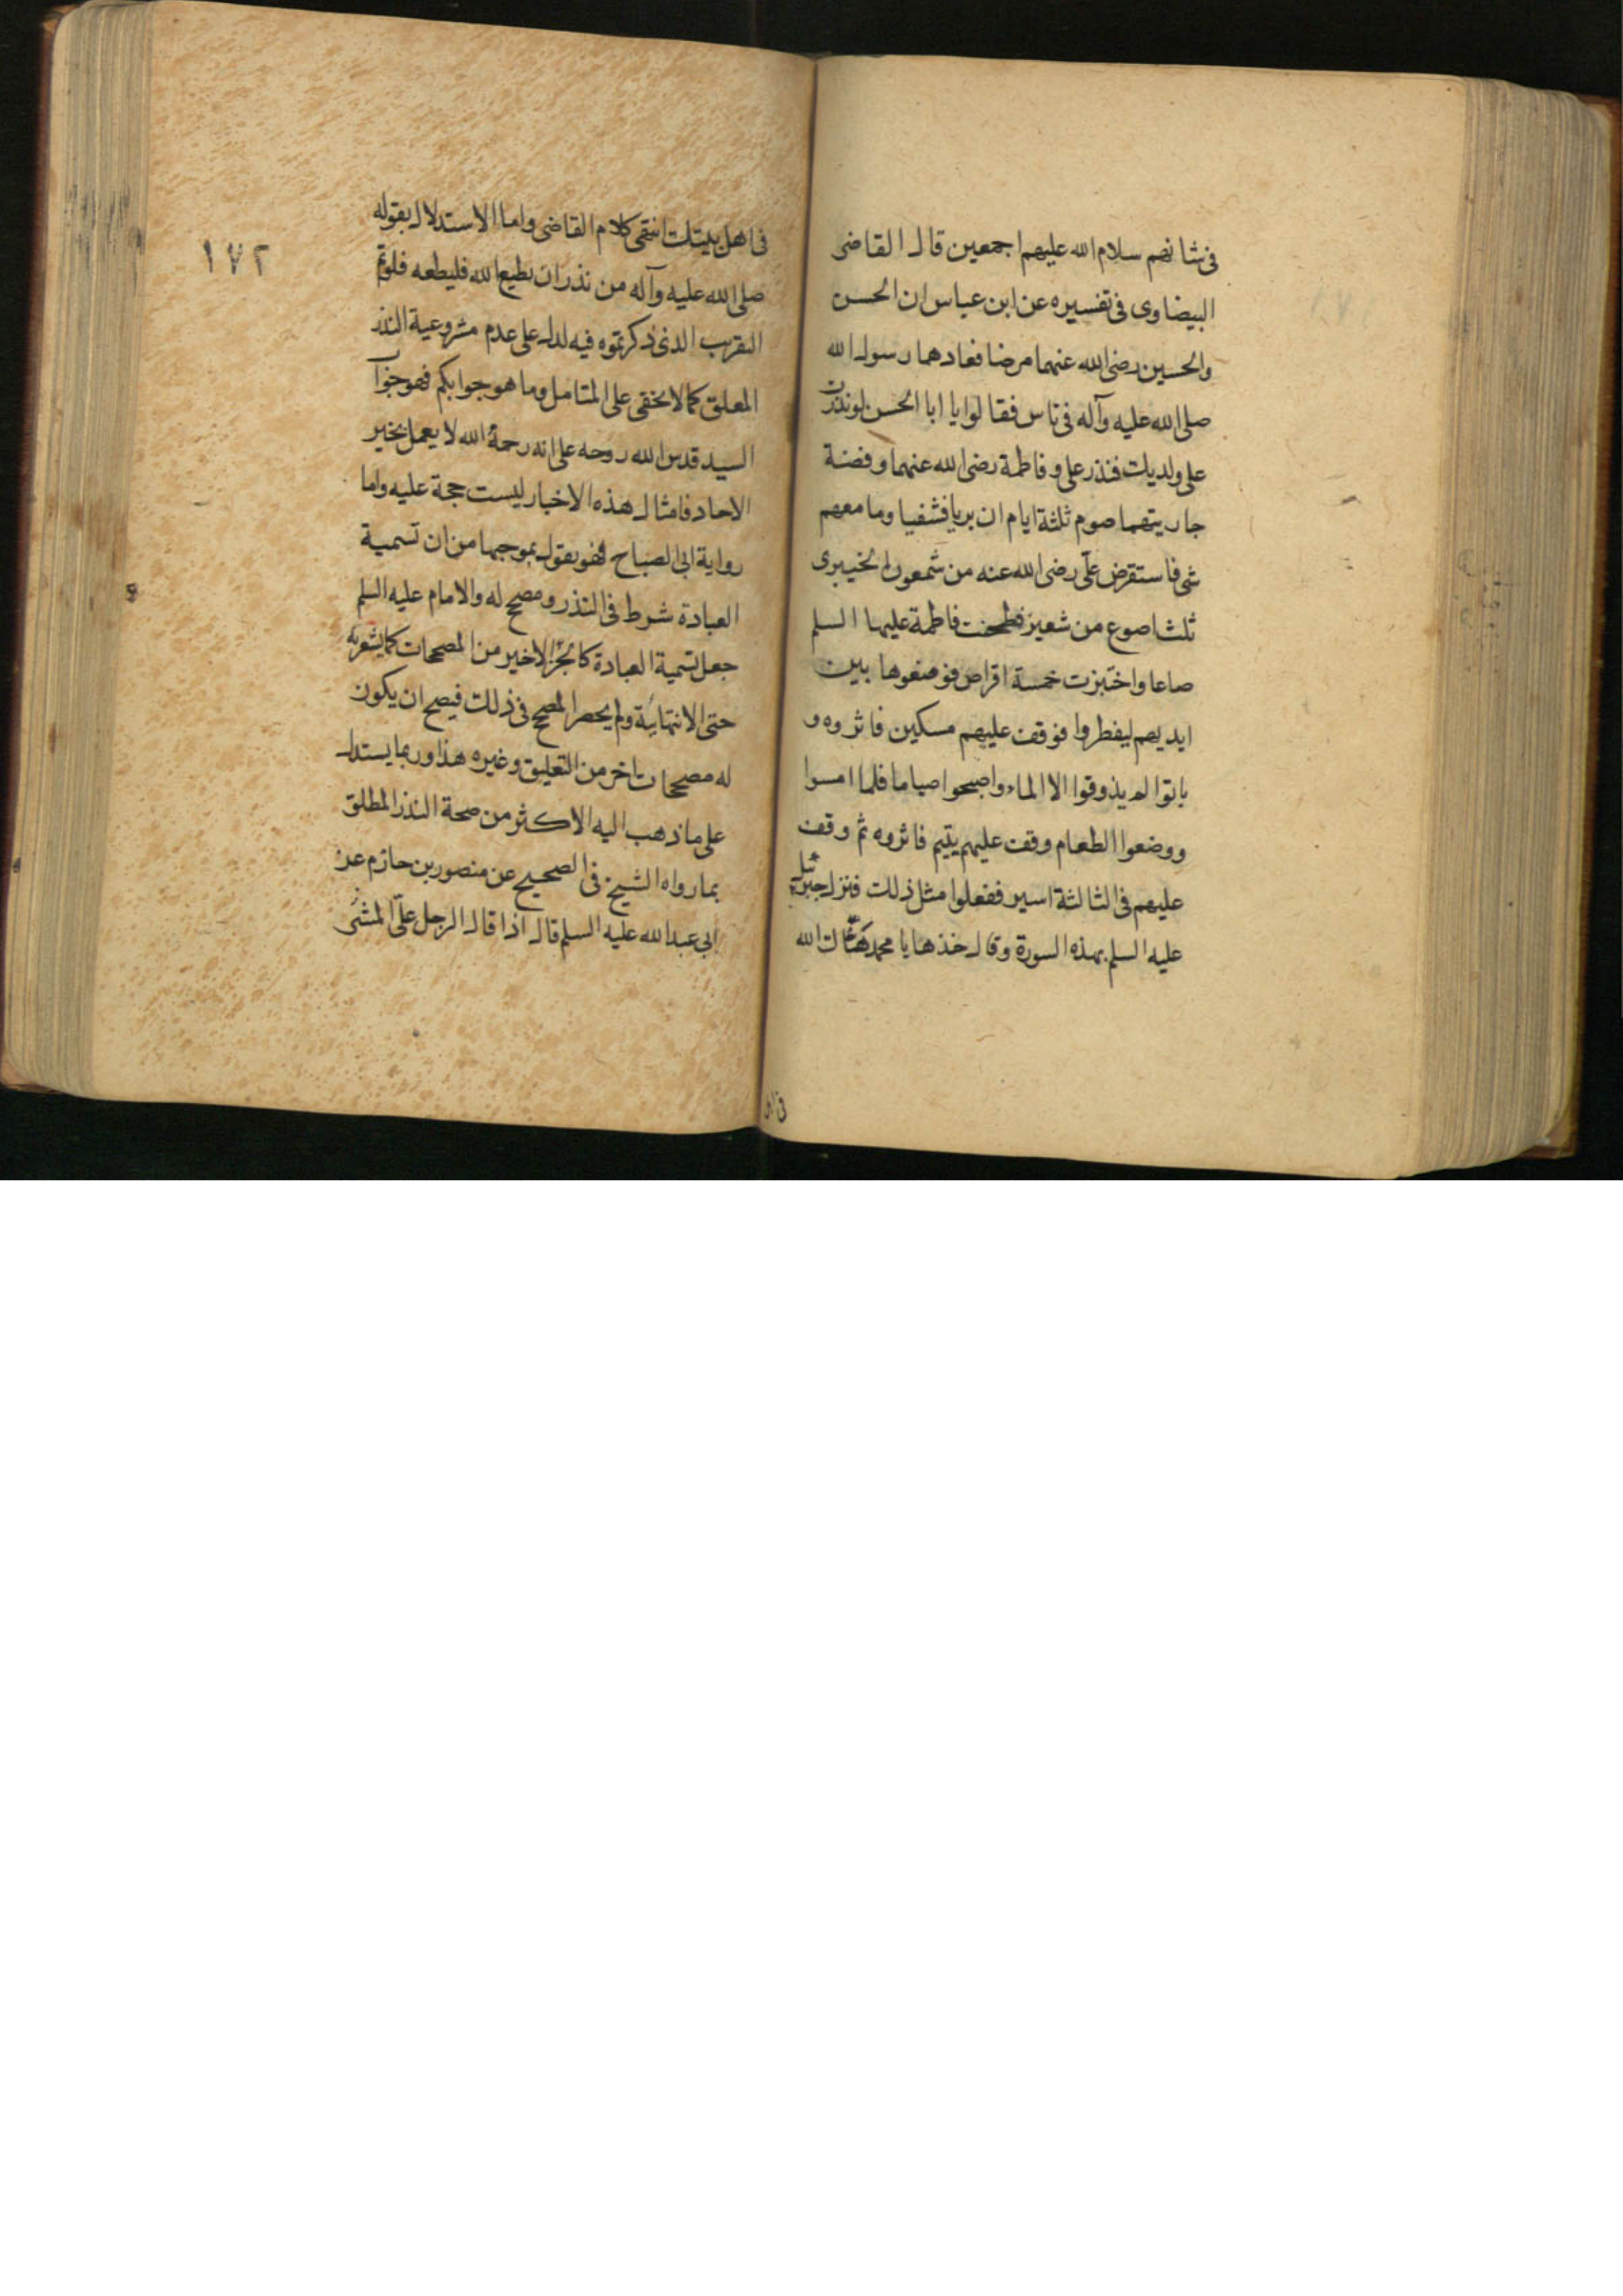 فى شانهم سلام الله عليهم اجمعين قال القاضى
البيضاوى فى تفسيره عن ابن عباس ان الحسن
والحسين رضى الله عنهما مرضا فعادهما رسول الله
صلى الله عليه وآله فى ناس فقالوا يا ابا الحسن لو نذرت
على ولديك فنذر على وفاطمة رضى الله عنهما وفضة
جاريتهما صوم ثلثة ايام ان بريا فشفيا وما معهم
شى فاستقرض على رضى الله عنه من شمعون الخيبرى
ثلث اصوع من شعير فطحنت فاطمة عليها السلم
صاعا واختبزت خمسة اقراص فوضعوها بين
ايديهم ليفطروا فوقف عليهم مسكين فاثروه و
باتوا لم يذوقوا الا الماء واصبحوا صياما فلما امسوا
ووضعوا الطعام وقف عليهم يتيم فاثروه ثم وقف
عليهم فى الثالثة اسير ففعلوا مثل ذلك فنزل جبرئيل
عليه السلم بهذه السورة وقال خذها يا محمد هناك الله
فى اهل
١٧٢
فى اهل بيتك انتهى كلام القاضى واما الاستدلال بقوله
صلى الله عليه وآله من نذر ان يطيع الله فليطعه فلو تم
التقريب الذى ذكرتموه فيه لدل على عدم مشروعية النذر
المعلق كما لا يخفى على المتامل وما هو جوابكم فهو جوا
السيد قدس الله روحه على انه رحمة الله لا يعمل بخبر
الاحاد فامثال هذه الاخبار ليست حجة عليه واما
رواية ابى الصباح فهو يقول بموجبها من ان تسمية
العبادة شرط فى النذر ومصحح له والامام عليه السلم
جعل تسمية العبادة كالجزء الاخير من المصححات كما يشعر به
حتى الانتهائية ولم يحصر المصحح فى ذلك فيصح ان يكون
له مصححات اخر من التعليق وغيره هذا وربما يستدل
على ما ذهب اليه الاكثر من صحة النذر المطلق
بما رواه الشيخ فى الصحيح عن منصور بن حازم عن
ابى عبد الله عليه السلم قال اذا قال الرجل على المشى